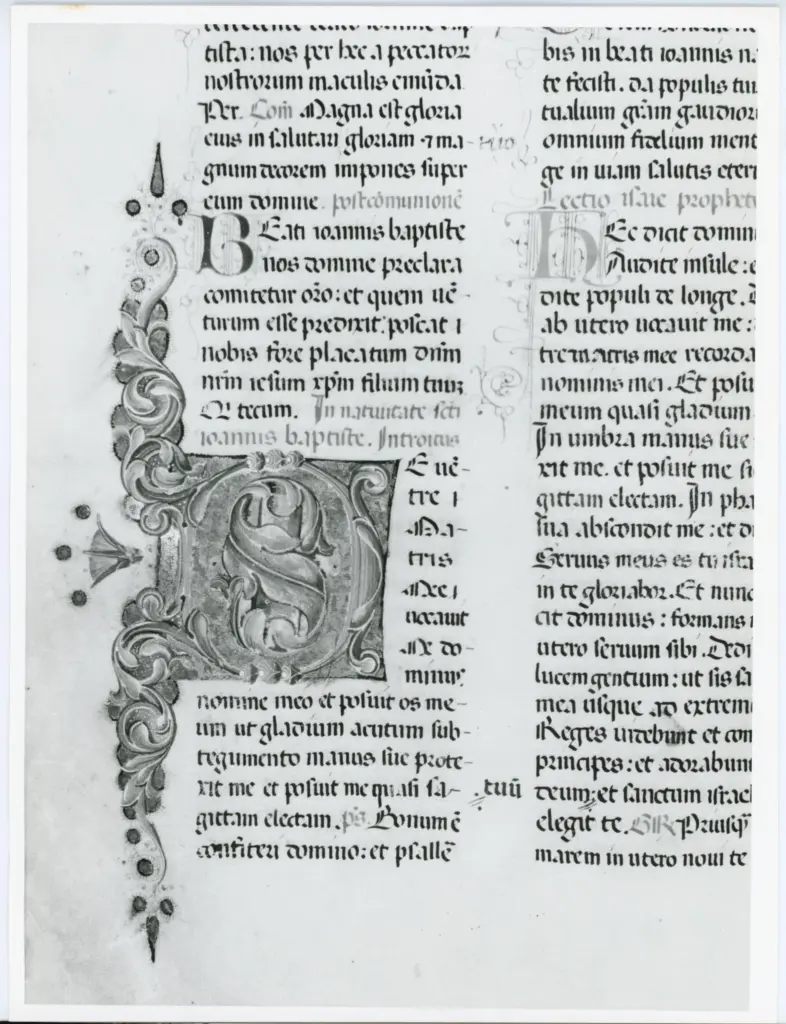 tista: nos per hec a peccatoꝝ
nostrorum maculis emūda
Per. Com̄ Magna est gloria
eius in salutari gloriam ⁊ ma-
gnum decorem impones super
eum domine. postcōmunionē
BEati ioannis baptiste
nos domine preclara
comitetur or̄o: et quem uē-
turum esse predixit: poscat
nobis fore placatum dn̄m
nr̄m iesum xp̄m filium tuuꝫ
Qui tecum. In natiuitate sc̄ti
ioannis baptiste. Introitus
DE uē-
tre
Ma-
tris
Mee
uocauit
Me do-
minus
nomine meo et posuit os me-
um ut gladium acutum sub-
tegumento manus sue prote-
xit me et posuit me quasi sa-
gittam electam. p̄s. Bonum ē
confiteri domino: et psallē
bis in beati ioannis na
te fecisti. da populis tui
tualium gr̄am gaudior
omnium fidelium ment
ge in uiam salutis etern
Lectio isaie prophet
HEc dicit domin
Audite insule: e
dite populi de longe.
ab utero uocauit me:
tre matris mee recorda
nominis mei. Et posu
meum quasi gladium
In umbra manus sue
xit me. et posuit me si
gittam electam. In pha
sua abscondit me: et di
Seruus meus es tu isra
in te gloriabor. Et nunc
cit dominus: formans
utero seruum sibi. Dedi
lucem gentium: ut sis sa
mea usque ad extrem
Reges uidebunt et con
principes: et adorabunt
deum: et sanctum israel
tuū
elegit te. GR Priusqꝫ
marem in utero noui te